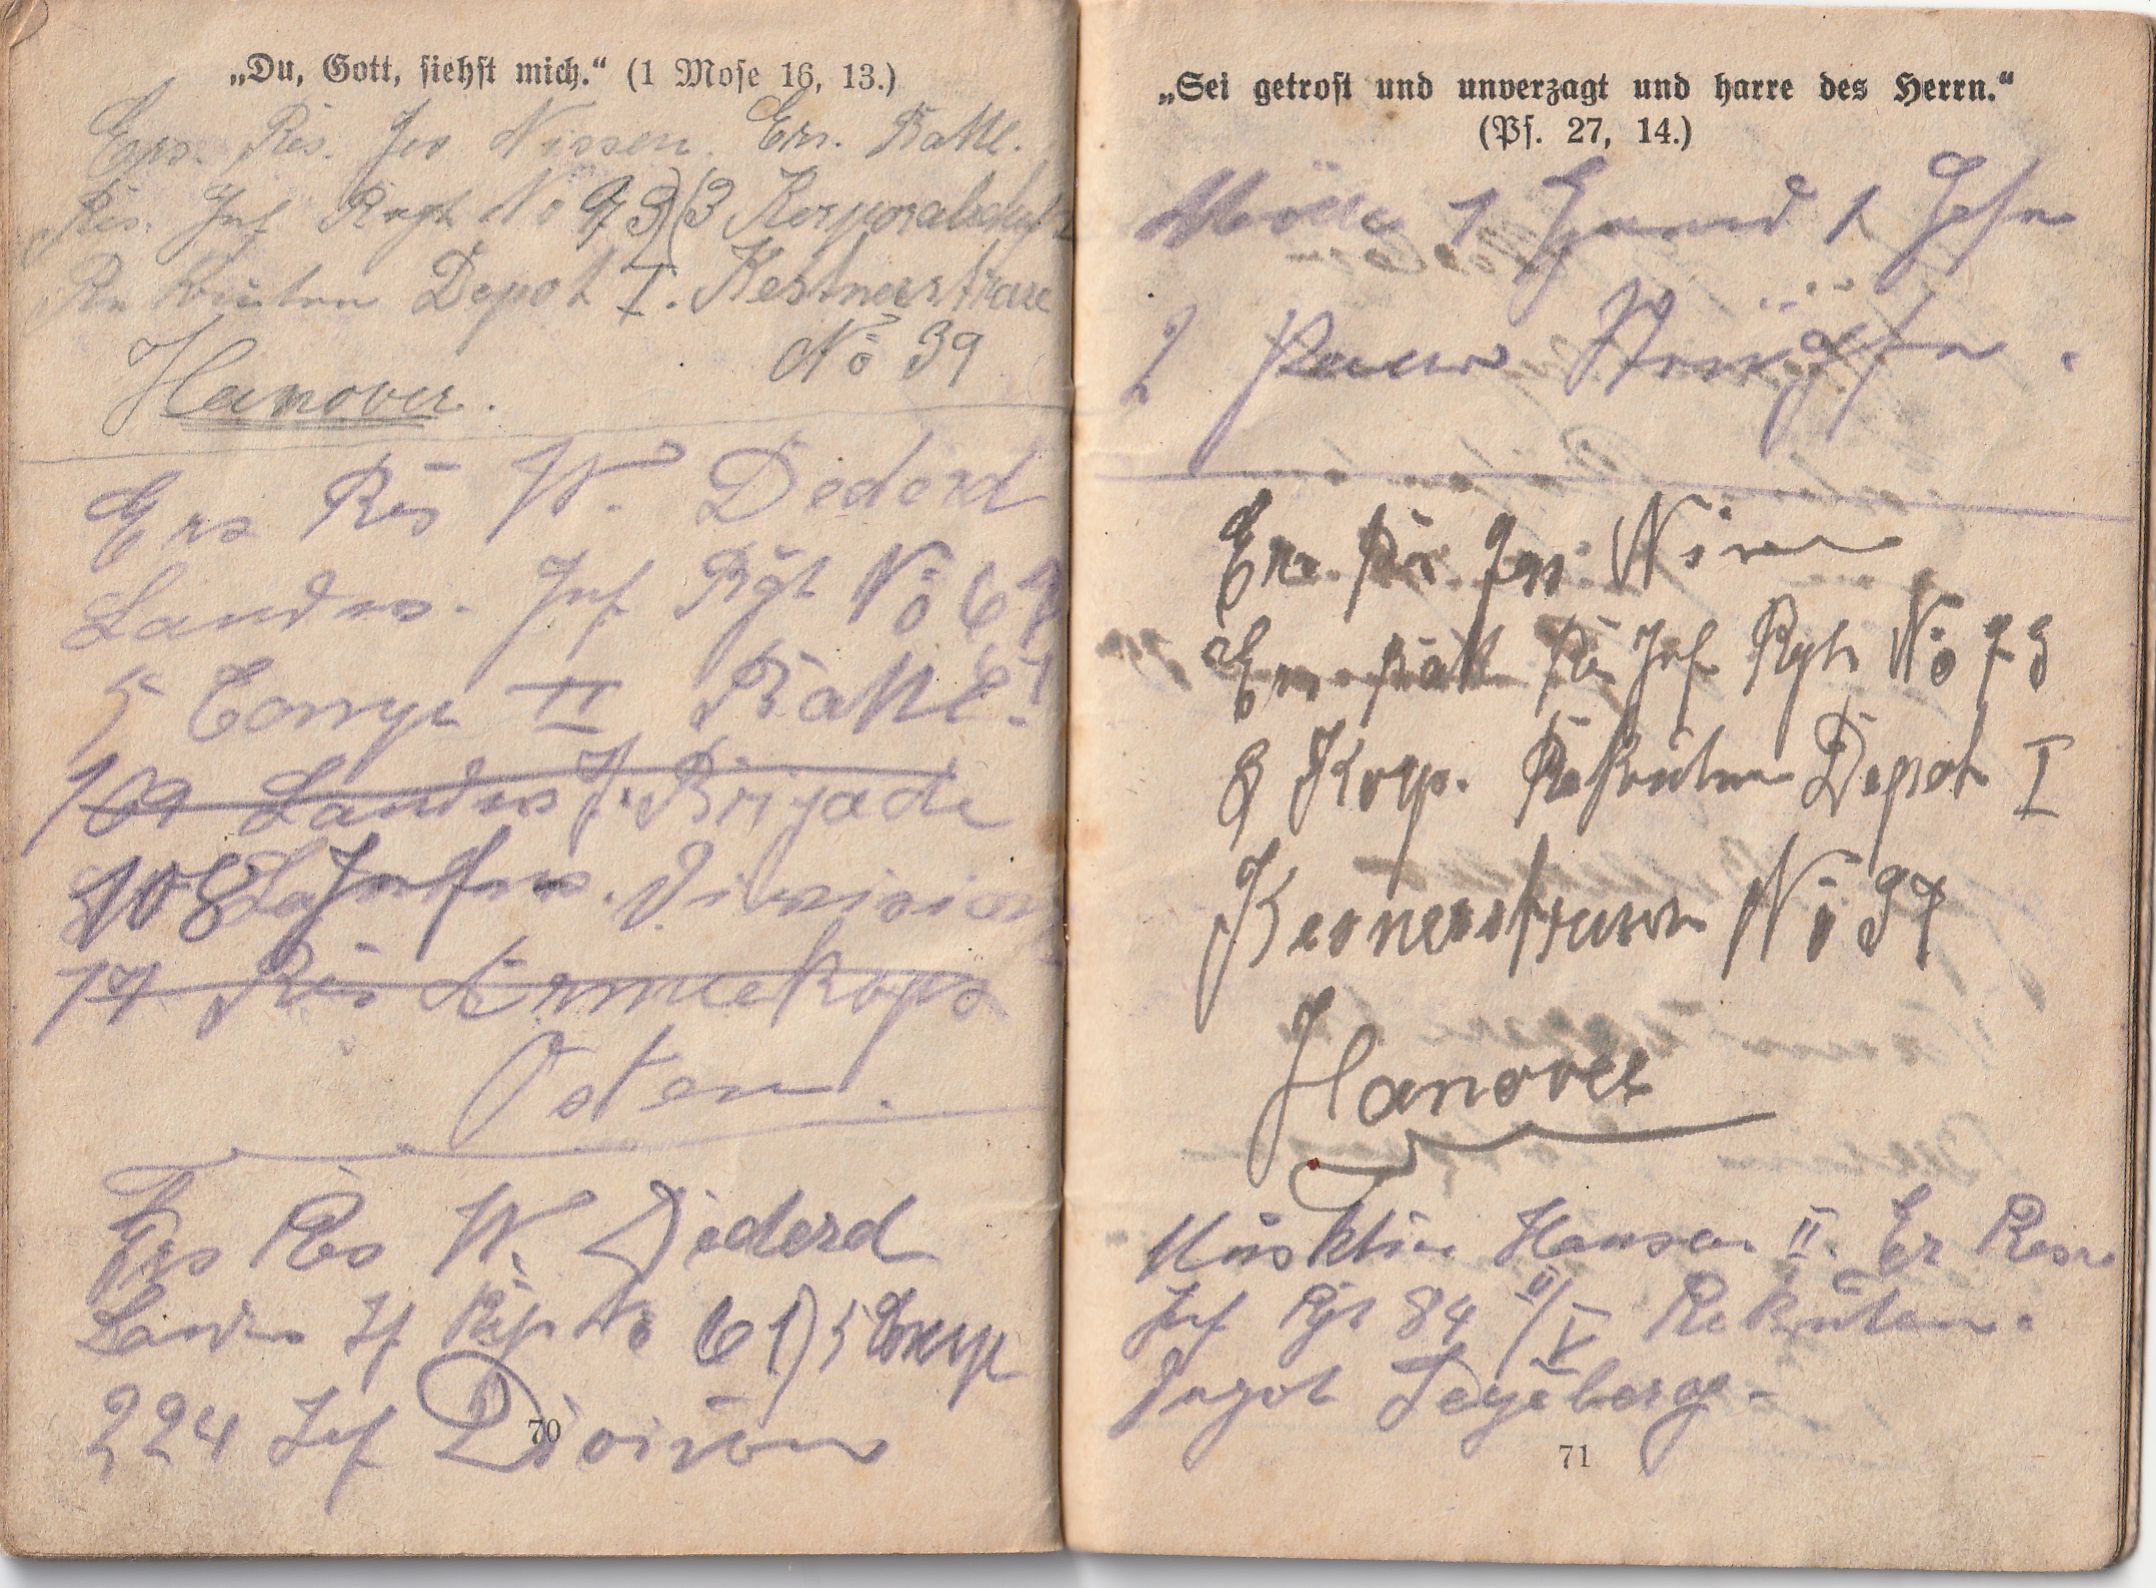 „Du, Gott, siehst mich.“ (1 Mose 16, 13.)
Ers. Res. Jes Nissen. Ers. Battl.
Res. Inf Regt No 93) (3 Korporalschft
Rekruten Depot I. Kestnerstrase
No 39
Hanover.
Ers Res W. Dederd
Landw. Inf Rgt No 61
5 Comp II Battl.
Landw J. Brigade
108 Division
17 Res Armeekops
Osten.
Ers Res W. Dederd
Landw If Rgt No 61) 5 Comp
224 Inf Division
70
„Sei getrost und unverzagt und harre des Herrn.“
(Ps. 27, 14.)
1 Hemd 1
2 Paar Strümpfe.
Ers. Res Jes Nissen
Ers Batl Res Inf Rgt No 73
3 Korp. Rekruten Depot I
No 39
Hanover
Musktier Hansen II. Er Res
Inf Rgt 84 II/V Rekruten.
Depot Segeberg.
71